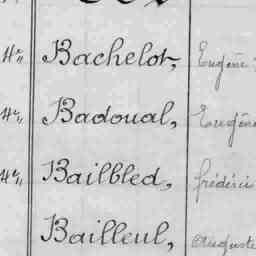 Mr Bachelot, Eugène
Mr Badoual, Eugène
Mr Bailbled, frédéric
Bailleul, auguste